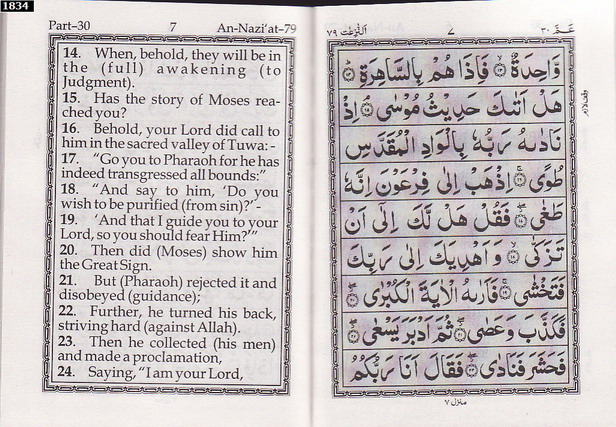 1834
Part–30 7 An-Nazi'at–79
14. When, behold, they will be in
the (full) awakening (to
Judgment).
15. Has the story of Moses rea-
ched you?
16. Behold, your Lord did call to
him in the sacred valley of Tuwa:-
17. “Go you to Pharaoh for he has
indeed transgressed all bounds:”
18. “And say to him, ‘Do you
wish to be purified (from sin)?’-
19. ‘And that I guide you to your
Lord, so you should fear Him?’”
20. Then did (Moses) show him
the Great Sign.
21. But (Pharaoh) rejected it and
disobeyed (guidance);
22. Further, he turned his back,
striving hard (against Allah).
23. Then he collected (his men)
and made a proclamation,
24. Saying, “I am your Lord,
عَمَّ ٣٠ ٧ النّٰزِعٰت ٧٩
وَّاحِدَةٌ ۝١٣ فَاِذَا هُمْ بِالسَّاهِرَةِ ۝١٤
هَلْ اَتٰىكَ حَدِيْثُ مُوْسٰى ۝١٥ اِذْ
نَادٰىهُ رَبُّهٗ بِالْوَادِ الْمُقَدَّسِ
طُوًى ۝١٦ اِذْهَبْ اِلٰى فِرْعَوْنَ اِنَّهٗ
طَغٰى ۝١٧ فَقُلْ هَلْ لَّكَ اِلٰٓى اَنْ
تَزَكّٰى ۝١٨ وَاَهْدِيَكَ اِلٰى رَبِّكَ
فَتَخْشٰى ۝١٩ فَاَرٰىهُ الْاٰيَةَ الْكُبْرٰى ۝٢٠
فَكَذَّبَ وَعَصٰى ۝٢١ ثُمَّ اَدْبَرَ يَسْعٰى ۝٢٢
فَحَشَرَ فَنَادٰى ۝٢٣ فَقَالَ اَنَا رَبُّكُمُ
وقف لازم
منزل ٧